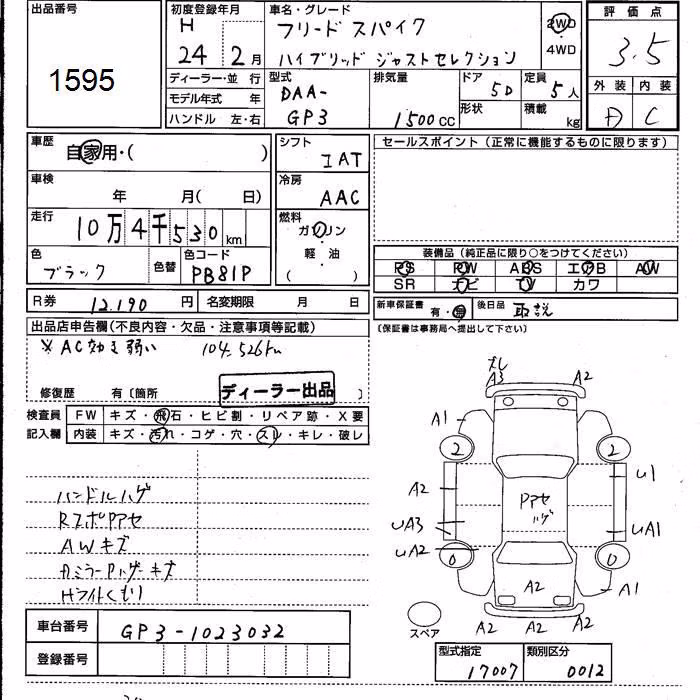 出品番号
1595
初度登録年月
H
24 2月
車名・グレード
フリード スパイク
ハイブリッド ジャストセレクション
2WD
・
4WD
評価点
3.5
外装 内装
D C
ディーラー・並 行
モデル年式 年
ハンドル 左・右
型式
DAA-
GP3
排気量
1500cc
ドア
5D
形状
定員
5人
積載
kg
車歴
自家用・( )
車検
年 月( 日)
走行
10万4千530km
色
ブラック
色替
色コード
PB81P
シフト
IAT
冷房
AAC
燃料
ガソリン
軽・油
( )
セールスポイント(正常に機能するものに限ります)
装備品(純正品に限り○をつけてください)
PS PW ABS エアB AW
SR ナビ TV カワ
R券 12.190 円
名変期限 月 日
新車保証書
有・無
後日品
取説
(保証書は事務局へ提出して下さい)
出品店申告欄(不良内容・欠品・注意事項等記載)
※ AC効き弱い 104.526km
修復歴 有〔箇所 〕
ディーラー出品
検査員
記入欄
FW キズ・飛石・ヒビ割・リペア跡・X要
内装 キズ・汚れ・コゲ・穴・スレ・キレ・破レ
ハンドルハゲ
RスポPアセ
AWキズ
ミラー キズ
Hライトくもり
A3 A2
A1
2 2
A2 U1
Pアセ
ハゲ
UA3 UA1
UA2
0 0
A2 A1
A2 A2 A2
スペア
車台番号 GP3-1023032
登録番号
型式指定 17007
類別区分 0012